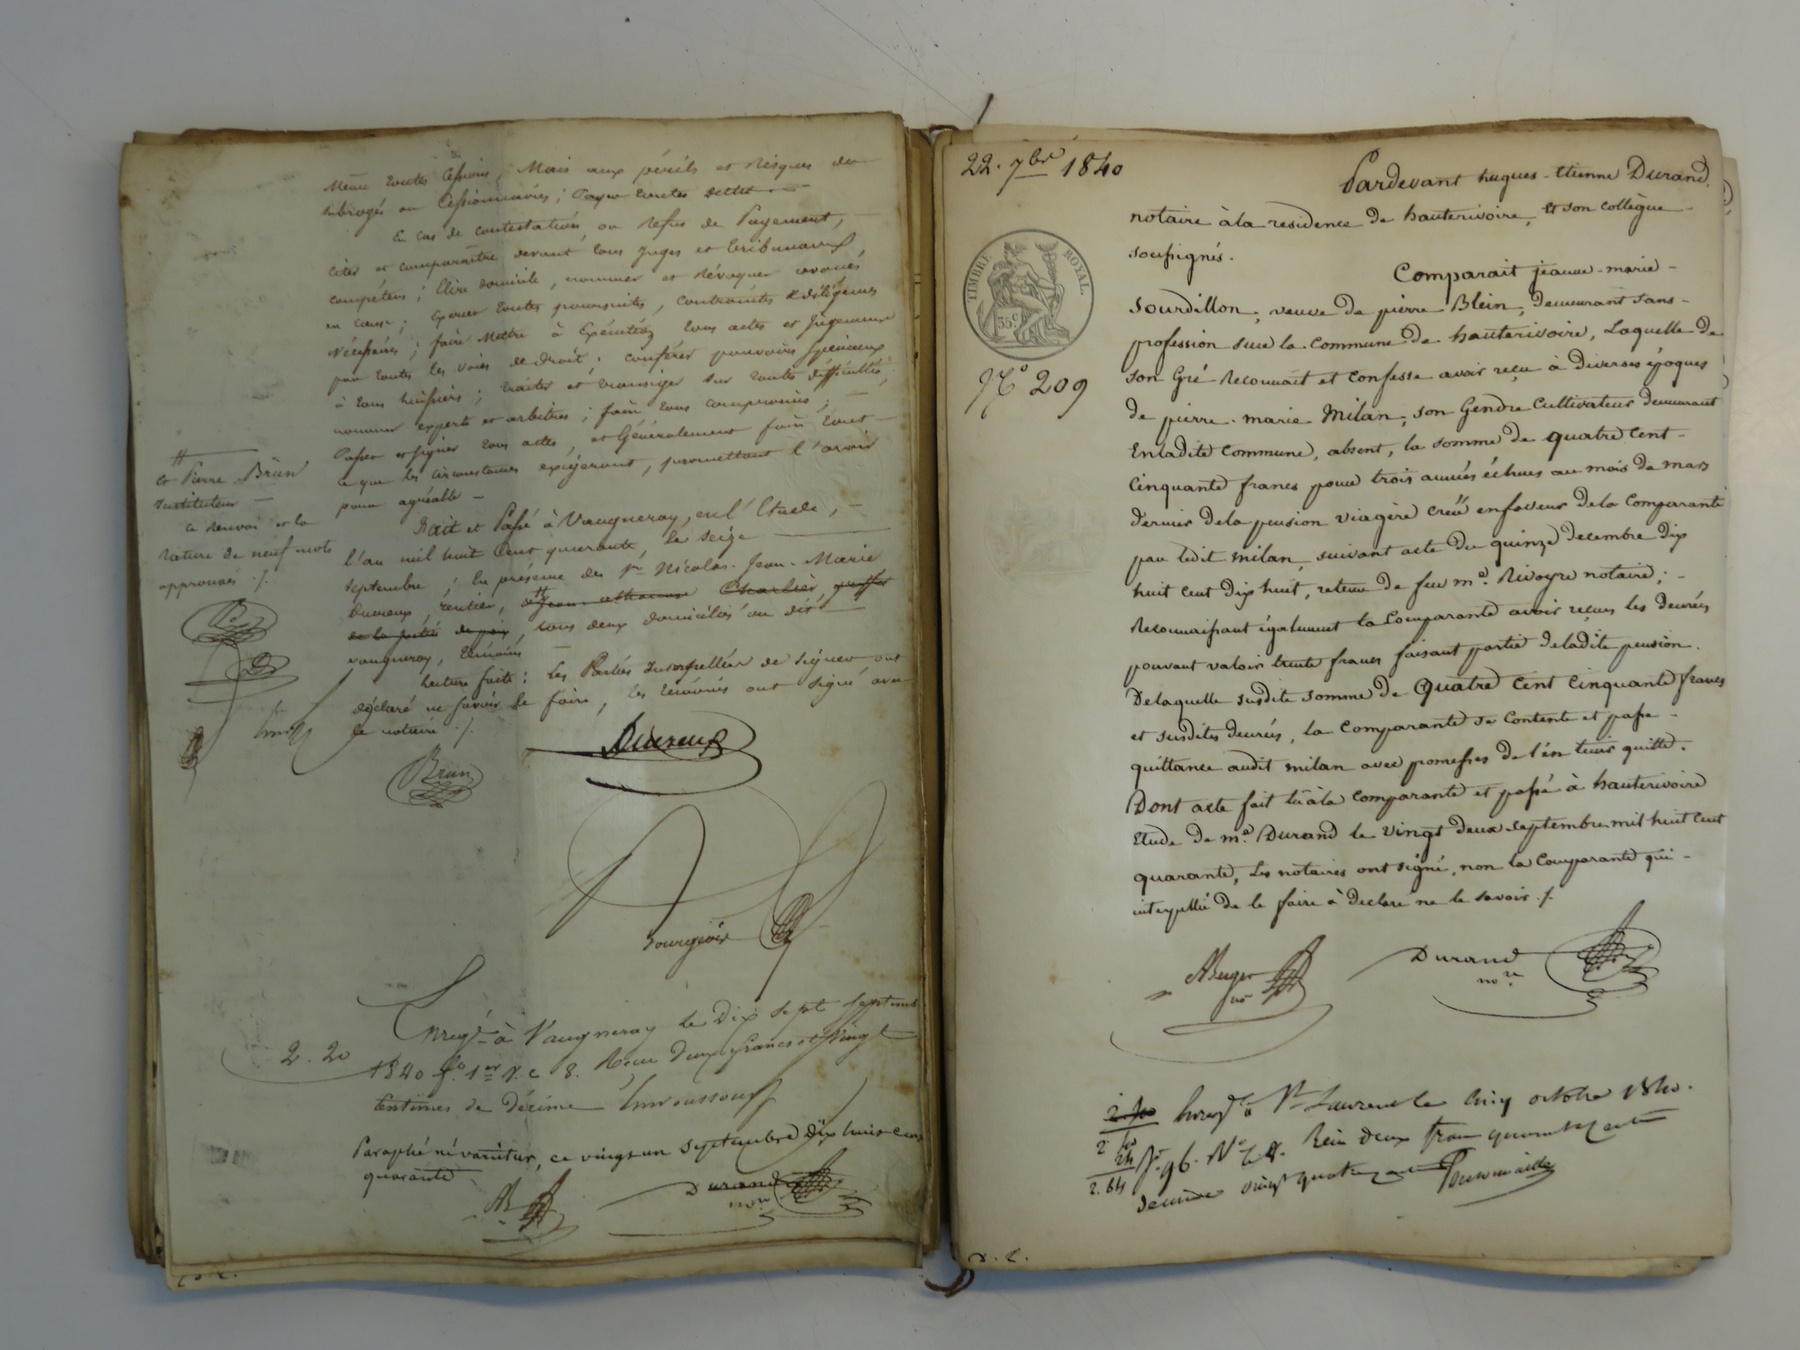 Même toutes Cessions, Mais aux périls et Risques des
subrogés ou Cessionnaires; Payer toutes dettes
En cas de contestations, ou Refus de Payement,
citer et comparaître devant tous Juges et tribunaux
compétens; élire domicile, nommer et Révoquer avoués
en cause; exercer toutes poursuites, contraintes & diligences
Nécessaires; faire Mettre à Exécution tous actes et Jugemens
par toutes les voies de droit; conférer pouvoirs spéciaux
à tous huissiers; traiter et transiger sur toutes difficultés;
nommer experts et arbitres; faire tous compromis;
Passer et signer tous actes, et Généralement faire tout
ce que les circonstances exigeront, promettant l'avoir
pour agréable
Fait et Passé à Vaugneray, en l'Etude,
l'an mil huit Cent quarante, le seize
septembre; En présence des Srs Nicolas Jean-Marie
Ducreux, rentier, et Jean Charlier, greffier
de la justice de paix, tous deux domiciliés au dit
vaugneray, témoins
Lecture faite: les Parties Interpellées de signer ont
déclaré ne savoir le faire, les témoins ont signé avec
le notaire ./.
et Pierre Brun
Instituteur
ce Renvoi et la
rature de neuf mots
approuvés ./.
Brun
Ducreux
Bourgeois
2.20
Enregé à Vaugneray le Dix sept septembre
1840 fo. 1er v. c 8. Reçu deux francs et Vingt
Centimes de Décime
Paraphé né variétur, ce vingt un septembre dix huit cent
quarante
Durand
nore
22. 7bre 1840
Pardevant hugues-Etienne Durand
notaire à la residence de hauterivoire, et son collègue
soussignés.
TIMBRE ROYAL.
35c
No 209
Comparait jeanne-marie
Sourdillon, veuve de pierre Blein, demeurant sans
profession sur la Commune de hauterivoire, Laquelle de
son Gré Reconnait et Confesse avoir reçu à diverses époques
de pierre-marie Milan, son Gendre Cultivateur demeurant
Enladite Commune, absent, la somme de quatre Cent
Cinquante francs pour trois années échues au mois de mars
dernier dela pension viagère créée enfaveur dela Comparante
par ledit milan, suivant acte du quinze decembre dix
huit cent dix huit, retenu de feu me. Rivoyre notaire;
Reconnaissant également la Comparante avoir reçues les denrées
pouvant valoir trente francs faisant partie deladite pension.
Delaquelle susdite somme de Quatre Cent Cinquante francs
et susdites denrées, la Comparante se Contente et passe
quittance audit milan avec promesses de l'en tenir quitte.
Dont acte fait lu à la Comparante et passé à hauterivoire
Etude de me. Durand le vingt deux septembre mil huit cent
quarante, Les notaires ont signé, non la Comparante qui
interpellée de le faire à Declaré ne le savoir ./.
ABerger
no
Durand
nore
Enregé à St Laurent le Cinq octobre 1840.
2 40
24
2.64
fo. 96. Ro C 8. Reçu deux francs quarante cent
décime vingt quatre